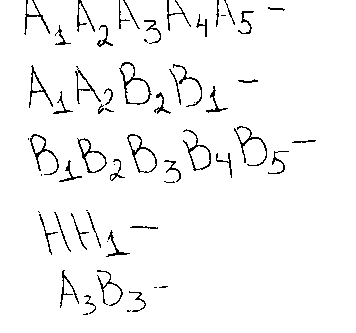 A₁A₂A₃A₄A₅ -
A₁A₂B₂B₁ -
B₁B₂B₃B₄B₅ -
HH₁ -
A₃B₃ -